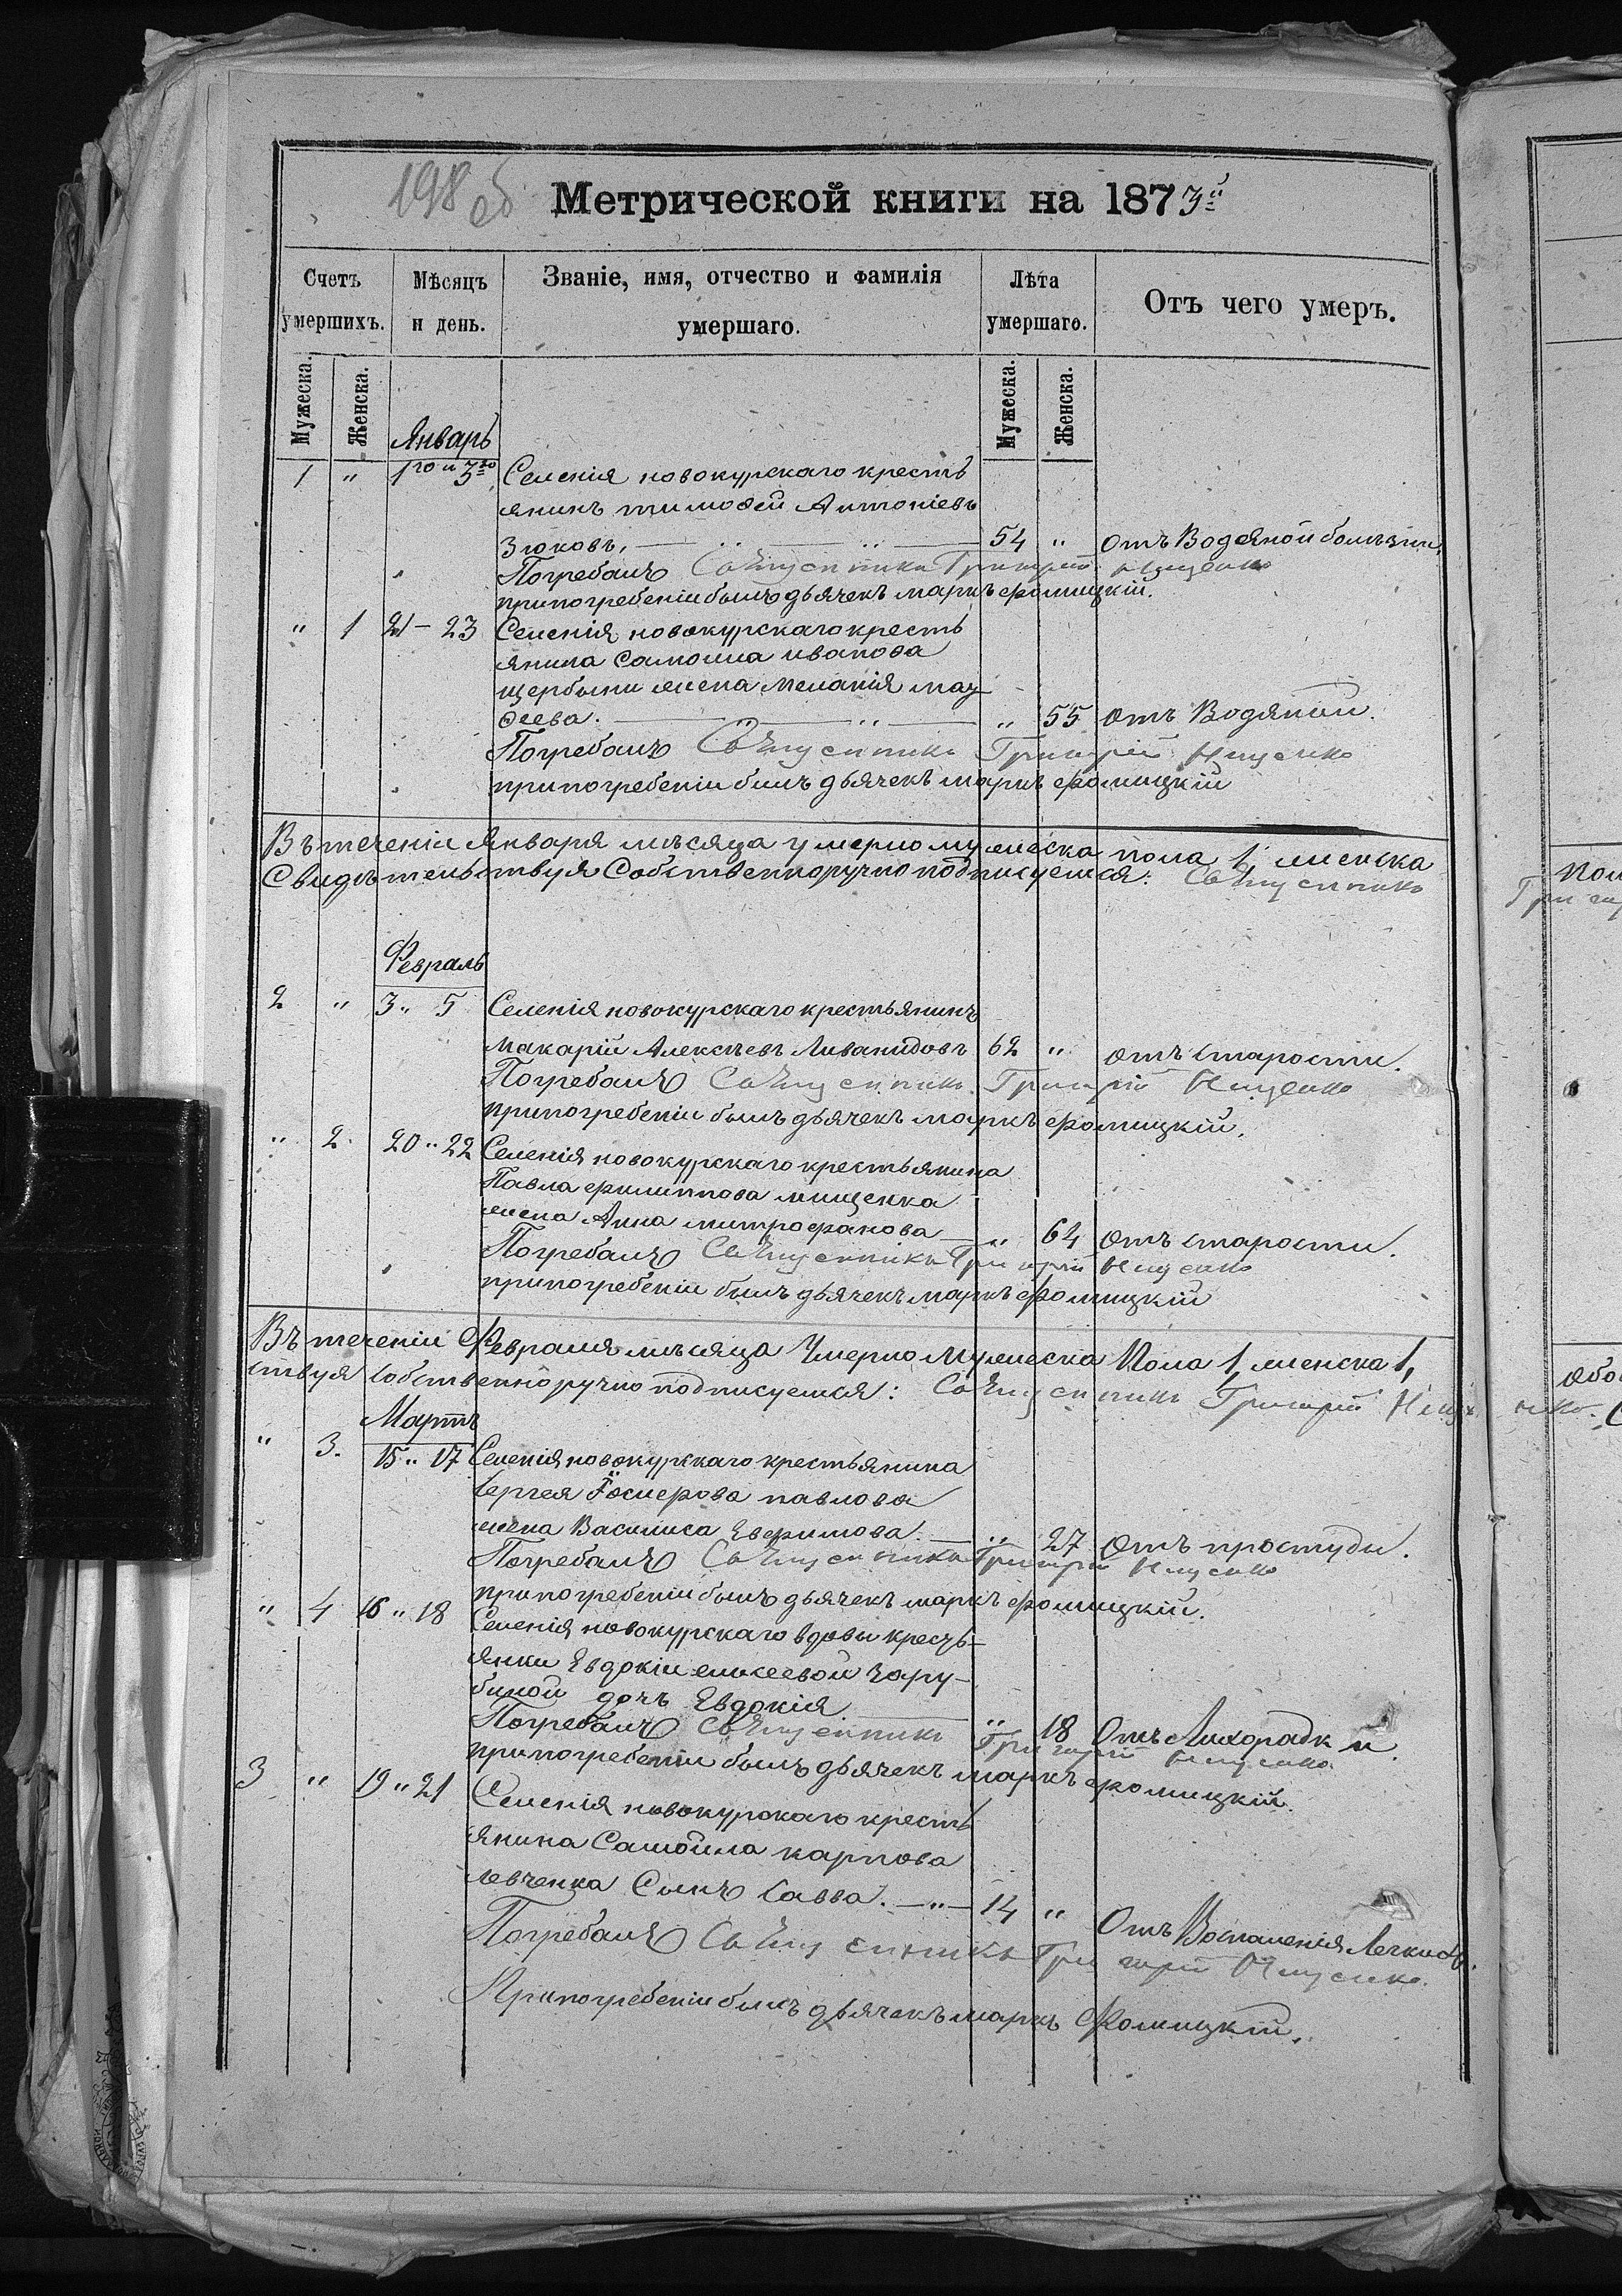 198 об
Метрической книги на 1873й
Счетъ умершихъ.
Мѣсяцъ и день.
Званіе, имя, отчество и фамилія умершаго.
Лѣта умершаго.
Отъ чего умеръ.
Мужеска.
Женска.
Мужеска.
Женска.
Январь
1 " 1го и 3го Селенія новокурскаго кресть
янинъ тимоѳей Антоніевъ
Зюковъ, 54 " отъ Водяной болѣзни,
Погребалъ Священникъ Григорій Нищенко
при погребеніи былъ дьячекъ маркъ фомицкій.
" 1 21 – 23 Селенія новокурскаго кресть
янина Самоила иванова
щербыни жена Меланія маѳ-
ѳеева. " 55 отъ Водяной.
Погребалъ Священникъ Григорій Нищенко
при погребеніи былъ дьячекъ маркъ фомицкій
Въ теченіи Января мѣсяца умерло мужеска пола 1, женска
Свидѣтельствуя Собственноручно подписуемся: Священникъ
Февраль
2 " 3 " 5 Селенія новокурскаго крестьянинъ
Макарій Алексѣевъ Ливанидовъ 62 " отъ старости.
Погребалъ Священникъ Григорій Нищенко
при погребеніи былъ дьячекъ маркъ фомицкій.
" 2. 20 " 22 Селенія новокурскаго крестьянина
Павла филиппова мищенка
жена Анна митрофанова " 64 отъ старости.
Погребалъ Священникъ Григорій Нищенко
при погребеніи былъ дьячекъ маркъ фомицкій
Въ теченіи Февраля мѣсяца Умерло Мужеска Пола 1, женска 1,
ствуя собственноручно подписуемся: Священникъ Григорій Нищенко.
Мартъ
" 3. 15 " 17 Селенія новокурскаго крестьянина
Сергея павлова
жена Василиса Евфимова. " 27 Отъ простуди.
Погребалъ Священникъ Григорій Нищенко
при погребеніи былъ дьячекъ маркъ фомицкій.
" 4 16 " 18 Селенія новокурскаго вдовы кресть-
янки Евдокіи Зару-
биной дочь Евдокія " 18 Отъ Лихорадки.
Погребалъ Священникъ Григорій Нищенко.
при погребеніи былъ дьячекъ маркъ фомицкій.
3 " 19 " 21 Селенія новокурскаго кресть
янина Самойла карпова
левченка Сынъ Савва. — " — 14 " Отъ Воспаленія Легкихъ.
Погребалъ Священникъ Григорій Нищенко.
При погребеніи былъ дьячекъ маркъ Фомицкій.